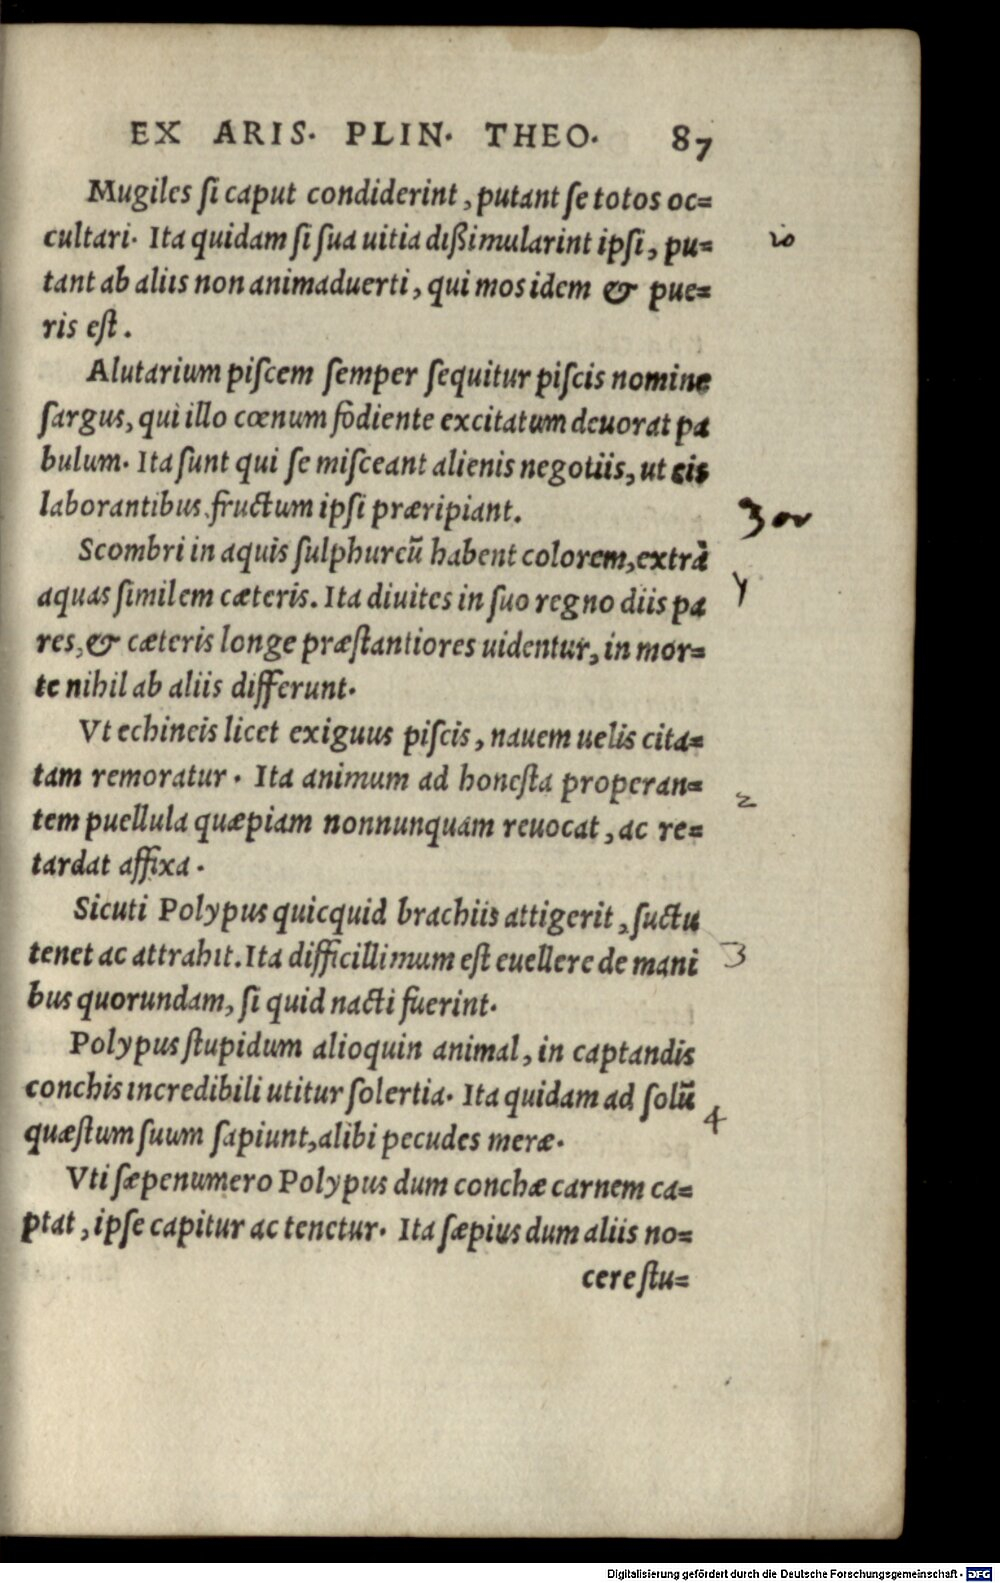 EX ARIS. PLIN. THEO. 87
Mugiles ſi caput condiderint, putant ſe totos oc=
cultari. Ita quidam ſi ſua uitia dißimularint ipſi, pu=
tant ab aliis non animaduerti, qui mos idem & pue=
ris eſt.
Alutarium piſcem ſemper ſequitur piſcis nomine
ſargus, qui illo cœnum fodiente excitatum deuorat pa
bulum. Ita ſunt qui ſe miſceant alienis negotiis, ut eis
laborantibus fructum ipſi præripiant.
Scombri in aquis ſulphureũ habent colorem, extrà
aquas ſimilem cæteris. Ita diuites in ſuo regno diis pa
res, & cæteris longe præſtantiores uidentur, in mor=
te nihil ab aliis differunt.
Vt echineis licet exiguus piſcis, nauem uelis cita=
tam remoratur. Ita animum ad honeſta properan=
tem puellula quæpiam nonnunquam reuocat, ac re=
tardat affixa.
Sicuti Polypus quicquid brachiis attigerit, ſuctu
tenet ac attrahit. Ita difficillimum eſt euellere de mani
bus quorundam, ſi quid nacti fuerint.
Polypus ſtupidum alioquin animal, in captandis
conchis incredibili utitur ſolertia. Ita quidam ad ſolũ
quæſtum ſuum ſapiunt, alibi pecudes meræ.
Vti ſæpenumero Polypus dum conchæ carnem ca=
ptat, ipſe capitur ac tenetur. Ita ſæpius dum aliis no=
cere ſtu=
y
2
3
4
Digitalisierung gefördert durch die Deutsche Forschungsgemeinschaft - DFG